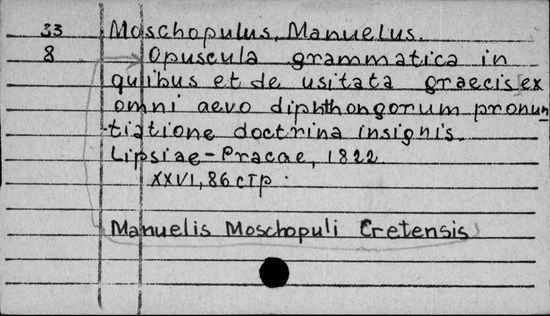 33 Moschopulus, Manuelus.
8 Opuscula grammatica in
quibus et de usitata graecis ex
omni aevo diphthongorum pronun
-tiatione doctrina insignis.
Lipsiae-Pracae, 1822.
XXVI, 86 стр.
Manuelis Moschopuli Cretensis